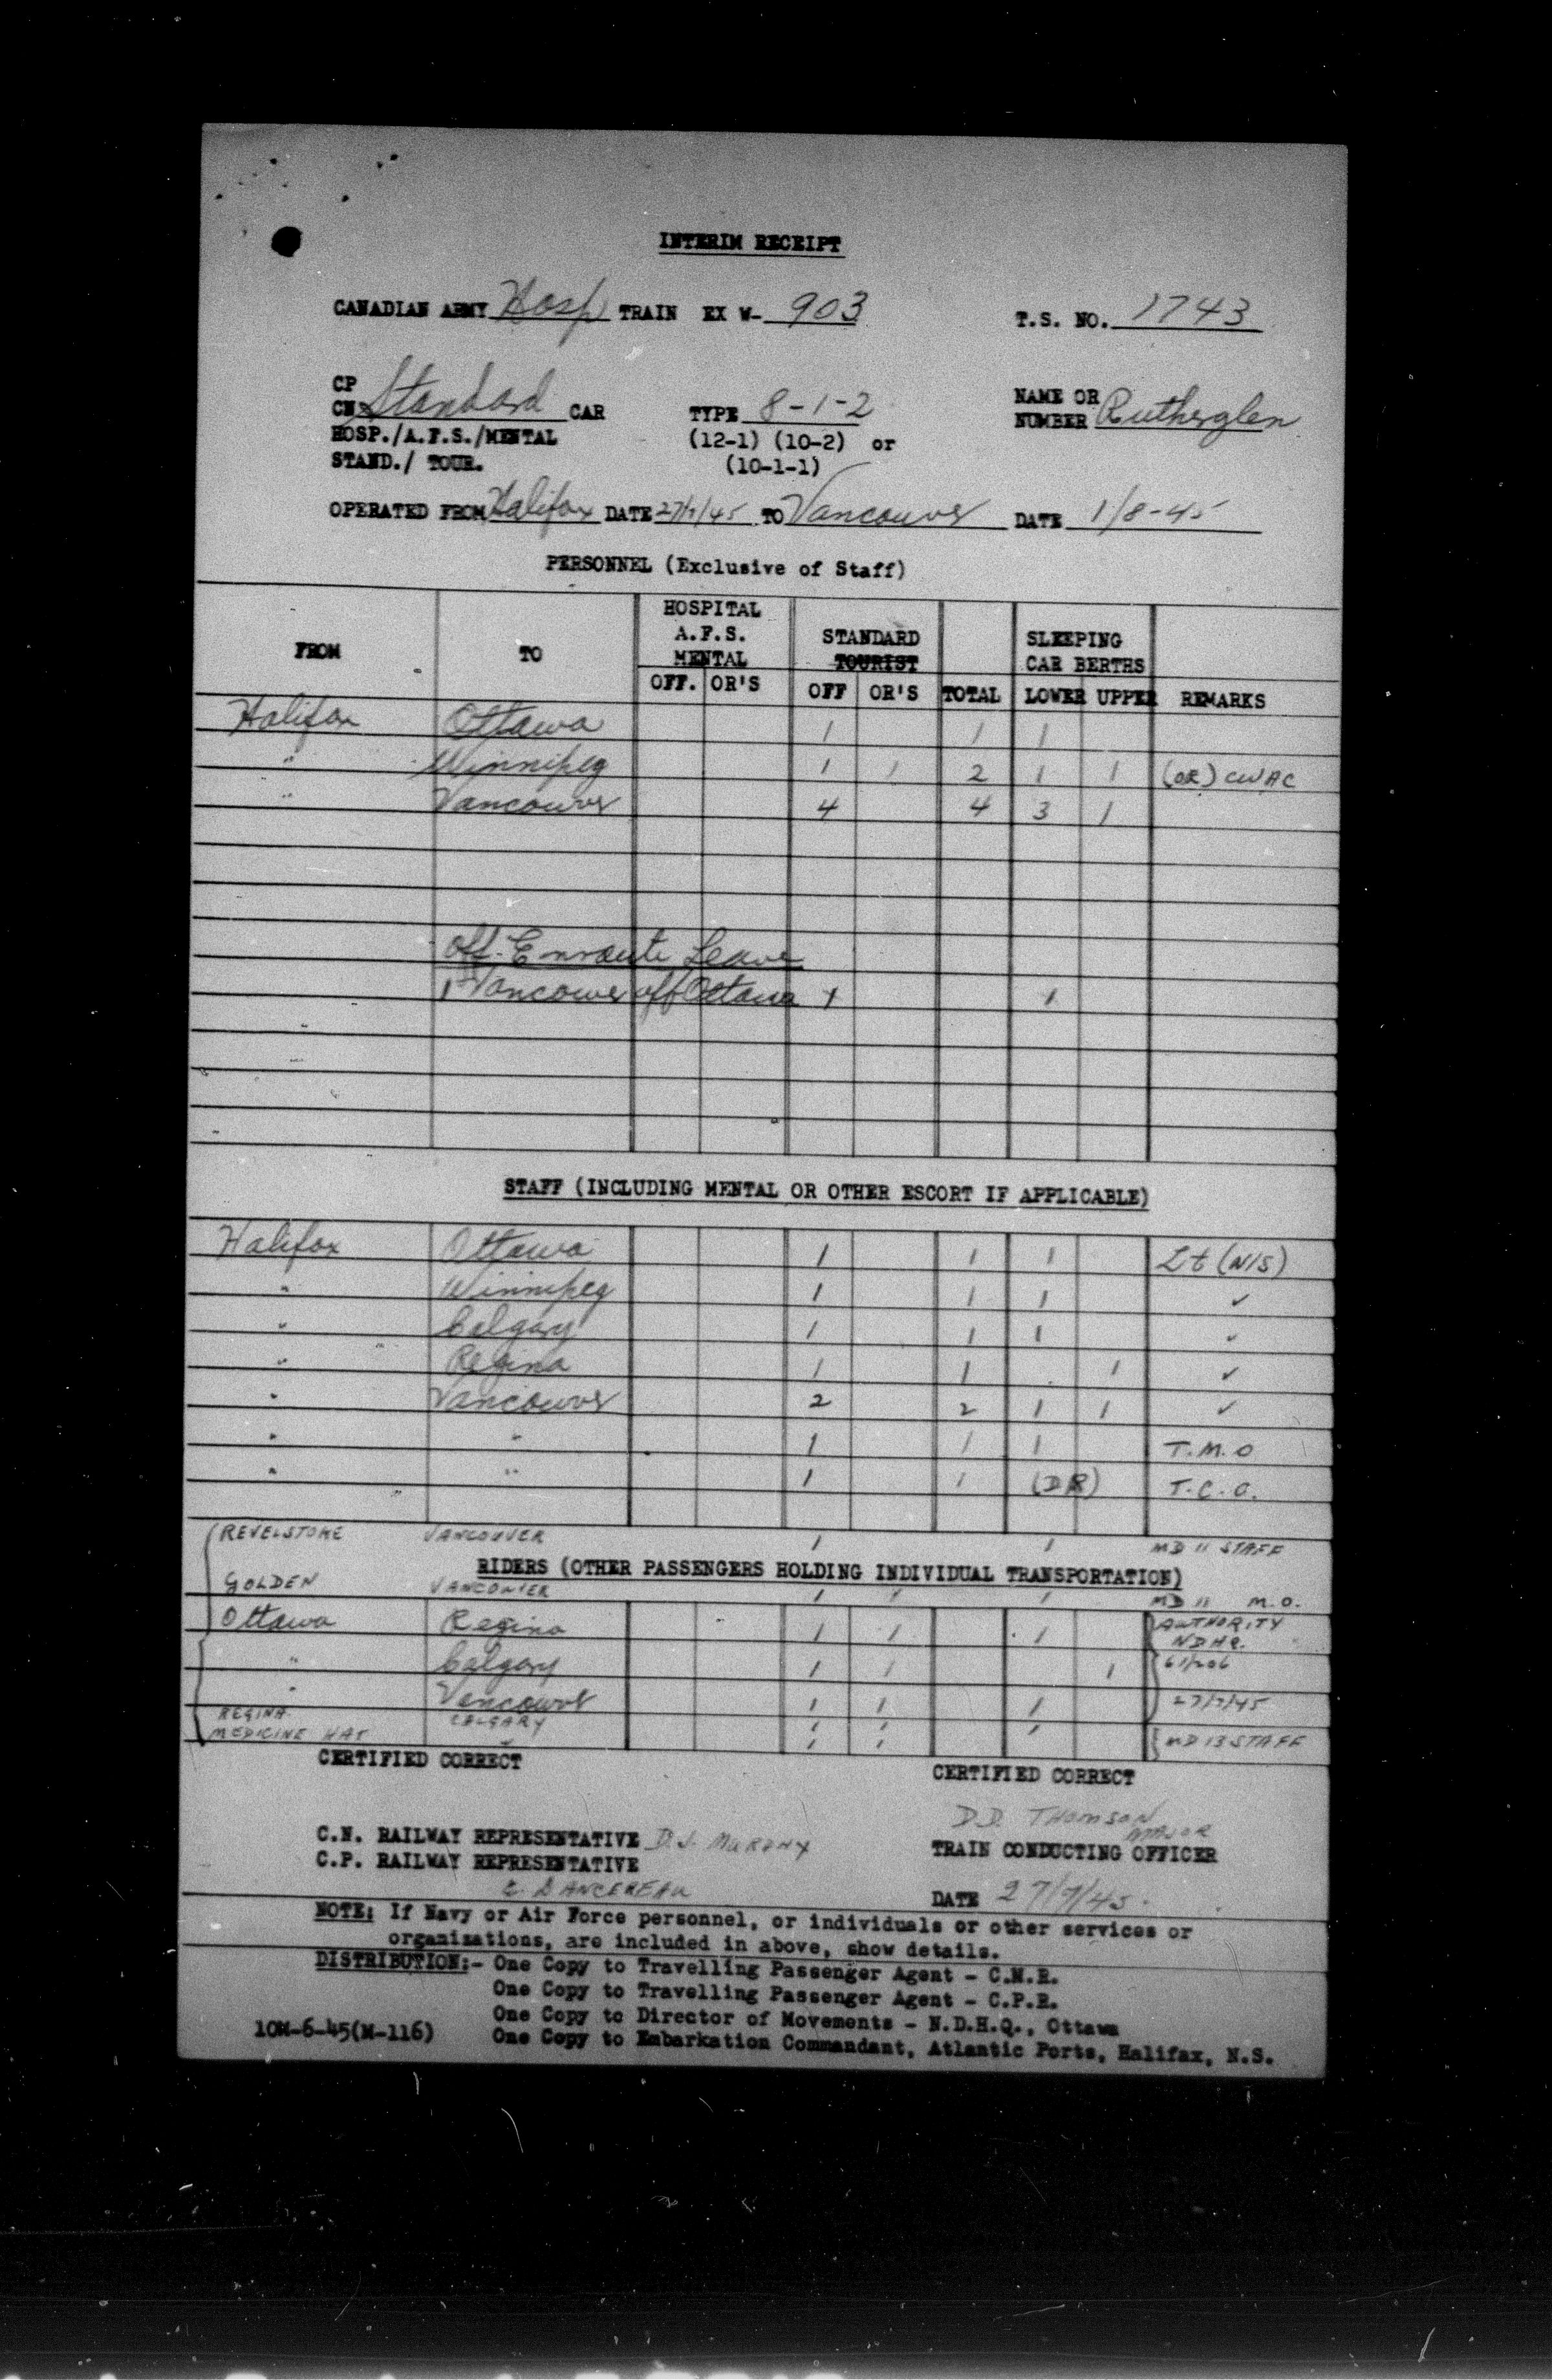 INTERIM RECEIPT
CANADIAN ARMY Hosp TRAIN EX W- 903 T.S. NO. 1743
CP
CN Standard CAR TYPE 8-1-2 NAME OR NUMBER Rutherglen
HOSP./A.F.S./MENTAL (12-1) (10-2) or
STAND./ TOUR. (10-1-1)
OPERATED FROM Halifax DATE 27/7/45 TO Vancouver DATE 1/8-45
PERSONNEL (Exclusive of Staff)
FROM TO HOSPITAL A.F.S. MENTAL STANDARD TOURIST SLEEPING CAR BERTHS
OFF. OR'S OFF OR'S TOTAL LOWER UPPER REMARKS
Halifax Ottawa 1 1 1
" Winnipeg 1 1 2 1 1 (OR) CWAC
" Vancouver 4 4 3 1
Off. Enroute Leave
1 Vancouver off Ottawa 1 1
STAFF (INCLUDING MENTAL OR OTHER ESCORT IF APPLICABLE)
Halifax Ottawa 1 1 1 Lt (N/S)
" Winnipeg 1 1 1 ✓
" Calgary 1 1 1 ✓
" Regina 1 1 1 ✓
" Vancouver 2 2 1 1 ✓
" " 1 1 1 T.M.O
" " 1 1 (DR) T.C.O.
REVELSTOKE VANCOUVER 1 1 MD 11 STAFF
RIDERS (OTHER PASSENGERS HOLDING INDIVIDUAL TRANSPORTATION)
GOLDEN VANCOUVER 1 1 1 MD 11 M.O.
Ottawa Regina 1 1 1 AUTHORITY NDHQ.
" Calgary 1 1 1 61/206
" Vancouver 1 1 1 27/7/45
REGINA CALGARY 1 1 1
MEDICINE HAT " 1 1 MD 13 STAFF
CERTIFIED CORRECT CERTIFIED CORRECT
D.D. THOMSON MAJOR
C.N. RAILWAY REPRESENTATIVE D.J. MURPHY TRAIN CONDUCTING OFFICER
C.P. RAILWAY REPRESENTATIVE
DATE 27/7/45.
NOTE: If Navy or Air Force personnel, or individuals or other services or
organizations, are included in above, show details.
DISTRIBUTION:- One Copy to Travelling Passenger Agent - C.N.R.
One Copy to Travelling Passenger Agent - C.P.R.
One Copy to Director of Movements - N.D.H.Q., Ottawa
10M-6-45(M-116) One Copy to Embarkation Commandant, Atlantic Ports, Halifax, N.S.